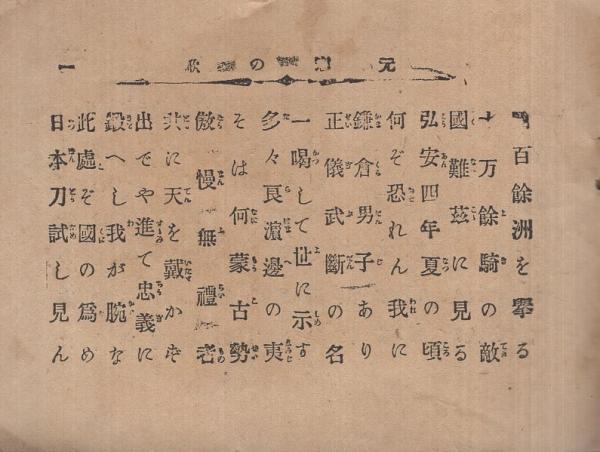 元寇の歌
一
四百餘洲を擧る
十万餘騎の敵
國難茲に見る
弘安四年夏の頃
何ぞ恐れん我に
鎌倉男子あり
正儀武斷の名
一喝して世に示す
多々良濵邊の夷
そは何蒙古勢
傲慢無禮者
共に天を戴かず
出でや進て忠義に
鍛へし我が腕な
此處ぞ國の爲め
日本刀試し見ん